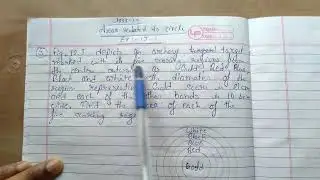 Areas related to circle
Fig. depicts an archery target
marked with its five scoring regions from
the centre Gold, Red, Blue
Black and White. The diameter of the
region representing Gold score is 21cm
and each of the other bands is 10.5cm
wide. Find the area of each of the
five scoring regions
White
Black
Blue
Red
Gold